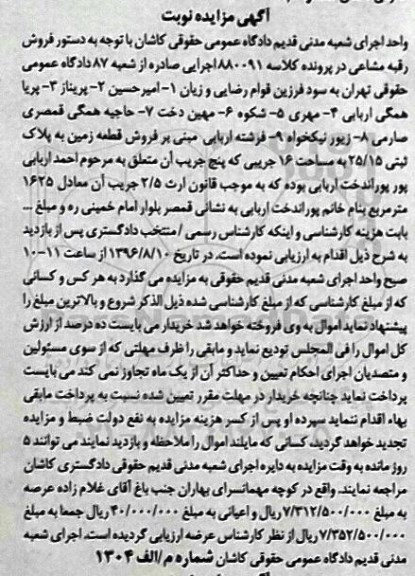 آگهی مزایده نوبت
واحد اجرای شعبه مدنی قدیم دادگاه عمومی حقوقی کاشان با توجه به دستور فروش
رقبه مشاعی در پرونده کلاسه ۸۸۰۰۹۱ اجرایی صادره از شعبه ۸۷ دادگاه عمومی
حقوقی تهران به سود فرزین قوام رضایی و زیان ۱- امیرحسین ۲- پریناز ۳- پریا
همگی اربابی ۴- مهری ۵- شکوه ۶- مهین دخت ۷- حاجیه همگی قمصری
صارمی ۸- زیور نیکخواه ۹- فرشته اربابی مبنی بر فروش قطعه زمین به پلاک
ثبتی ۲۵/۱۵ به مساحت ۱۶ جریبی که پنج جریب آن متعلق به مرحوم احمد اربابی
پور پوراندخت اربابی بوده که به موجب قانون ارث ۲/۵ جریب آن معادل ۱۶۲۵
مترمربع بنام خانم پوراندخت اربابی به نشانی قمصر بلوار امام خمینی ره و مبلغ ...
بابت هزینه کارشناسی و اینکه کارشناس رسمی / منتخب دادگستری پس از بازدید
به شرح ذیل اقدام به ارزیابی نموده است. در تاریخ ۱۳۹۶/۸/۱۰ از ساعت ۱۱-۱۰
صبح واحد اجرای شعبه مدنی قدیم حقوقی به مزایده می گذارد به هر کس و کسانی
که از مبلغ کارشناسی که از مبلغ کارشناسی شده ذیل الذکر شروع و بالاترین مبلغ را
پیشنهاد نماید اموال به وی فروخته خواهد شد خریدار می بایست ده درصد از ارزش
کل اموال را فی المجلس تودیع نماید و مابقی را ظرف مهلتی که از سوی مسئولین
و متصدیان اجرای احکام تعیین و حداکثر آن از یک ماه تجاوز نمی کند می بایست
پرداخت نماید چنانچه خریدار در مهلت مقرر تعیین شده نسبت به پرداخت مابقی
بهاء اقدام ننماید سپرده او پس از کسر هزینه مزایده به نفع دولت ضبط و مزایده
تجدید خواهد گردید. کسانی که مایلند اموال را ملاحظه و بازدید نمایند می توانند ۵
روز مانده به وقت مزایده به دایره اجرای شعبه مدنی قدیم حقوقی دادگستری کاشان
مراجعه نمایند. واقع در کوچه مهمانسرای بهاران جنب باغ آقای غلام زاده عرصه
به مبلغ ۷/۳۱۲/۵۰۰/۰۰۰ ریال و اعیانی به مبلغ ۴۰/۰۰۰/۰۰۰ ریال جمعا به مبلغ
۷/۳۵۲/۵۰۰/۰۰۰ ریال از نظر کارشناس عرضه ارزیابی گردیده است. اجرای شعبه
مدنی قدیم دادگاه عمومی حقوقی کاشان شماره م/الف ۱۳۰۴